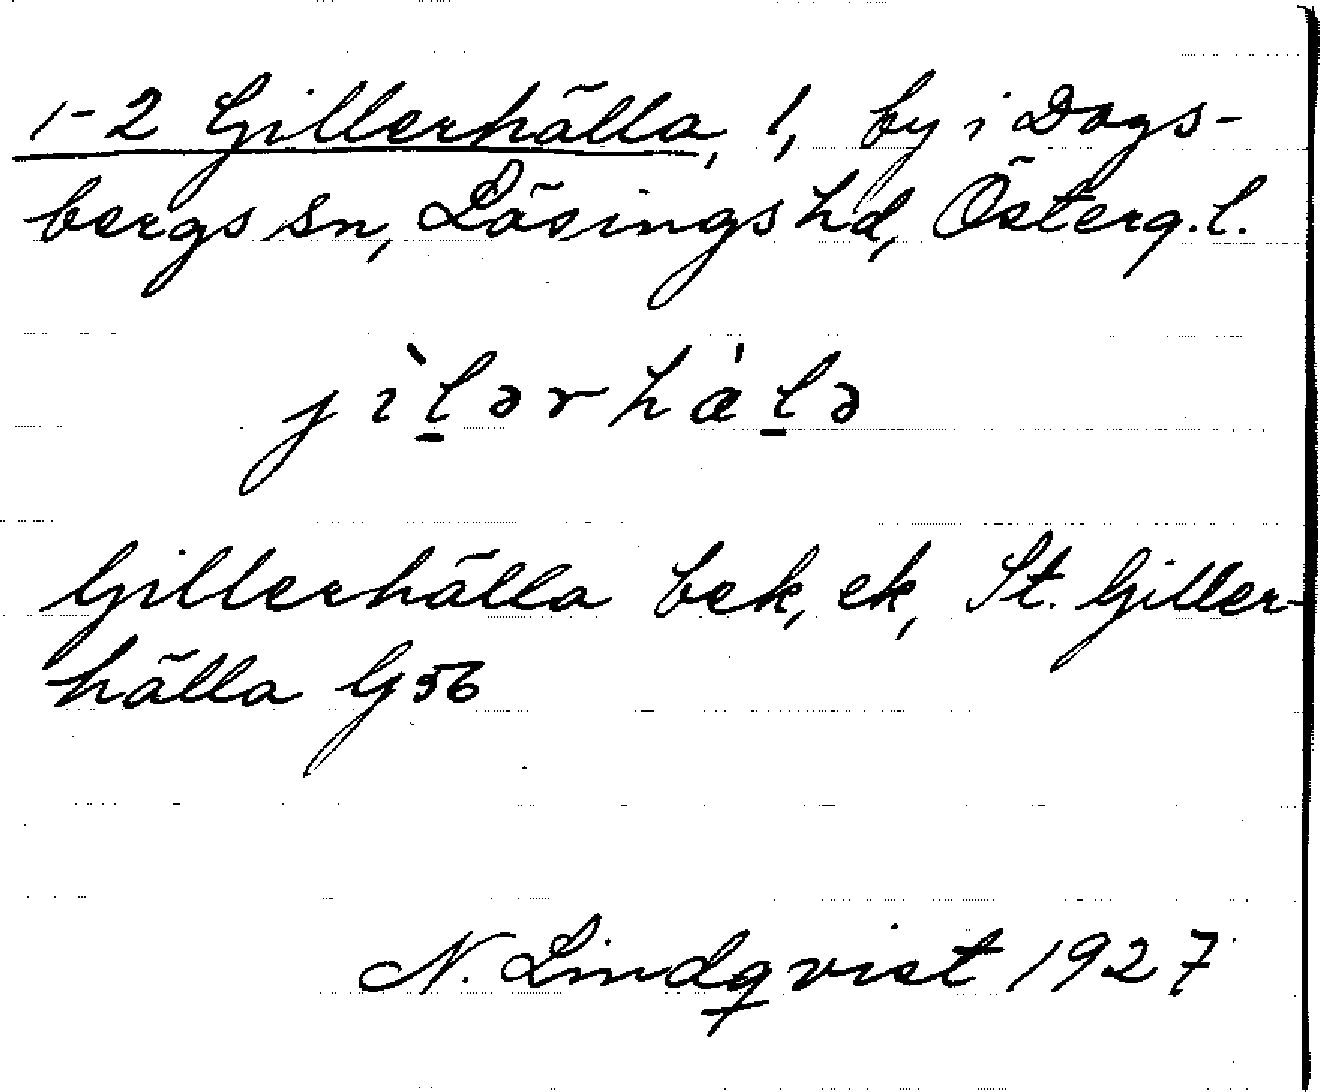 1-2 Gillerhälla, 1, by i Dags-
bergs sn, Lösings hd, Österg.l.
jìl̠ərhál̠ə
Gillerhälla bek, ek, St. Giller-
hälla G 56
N. Lindqvist 1927